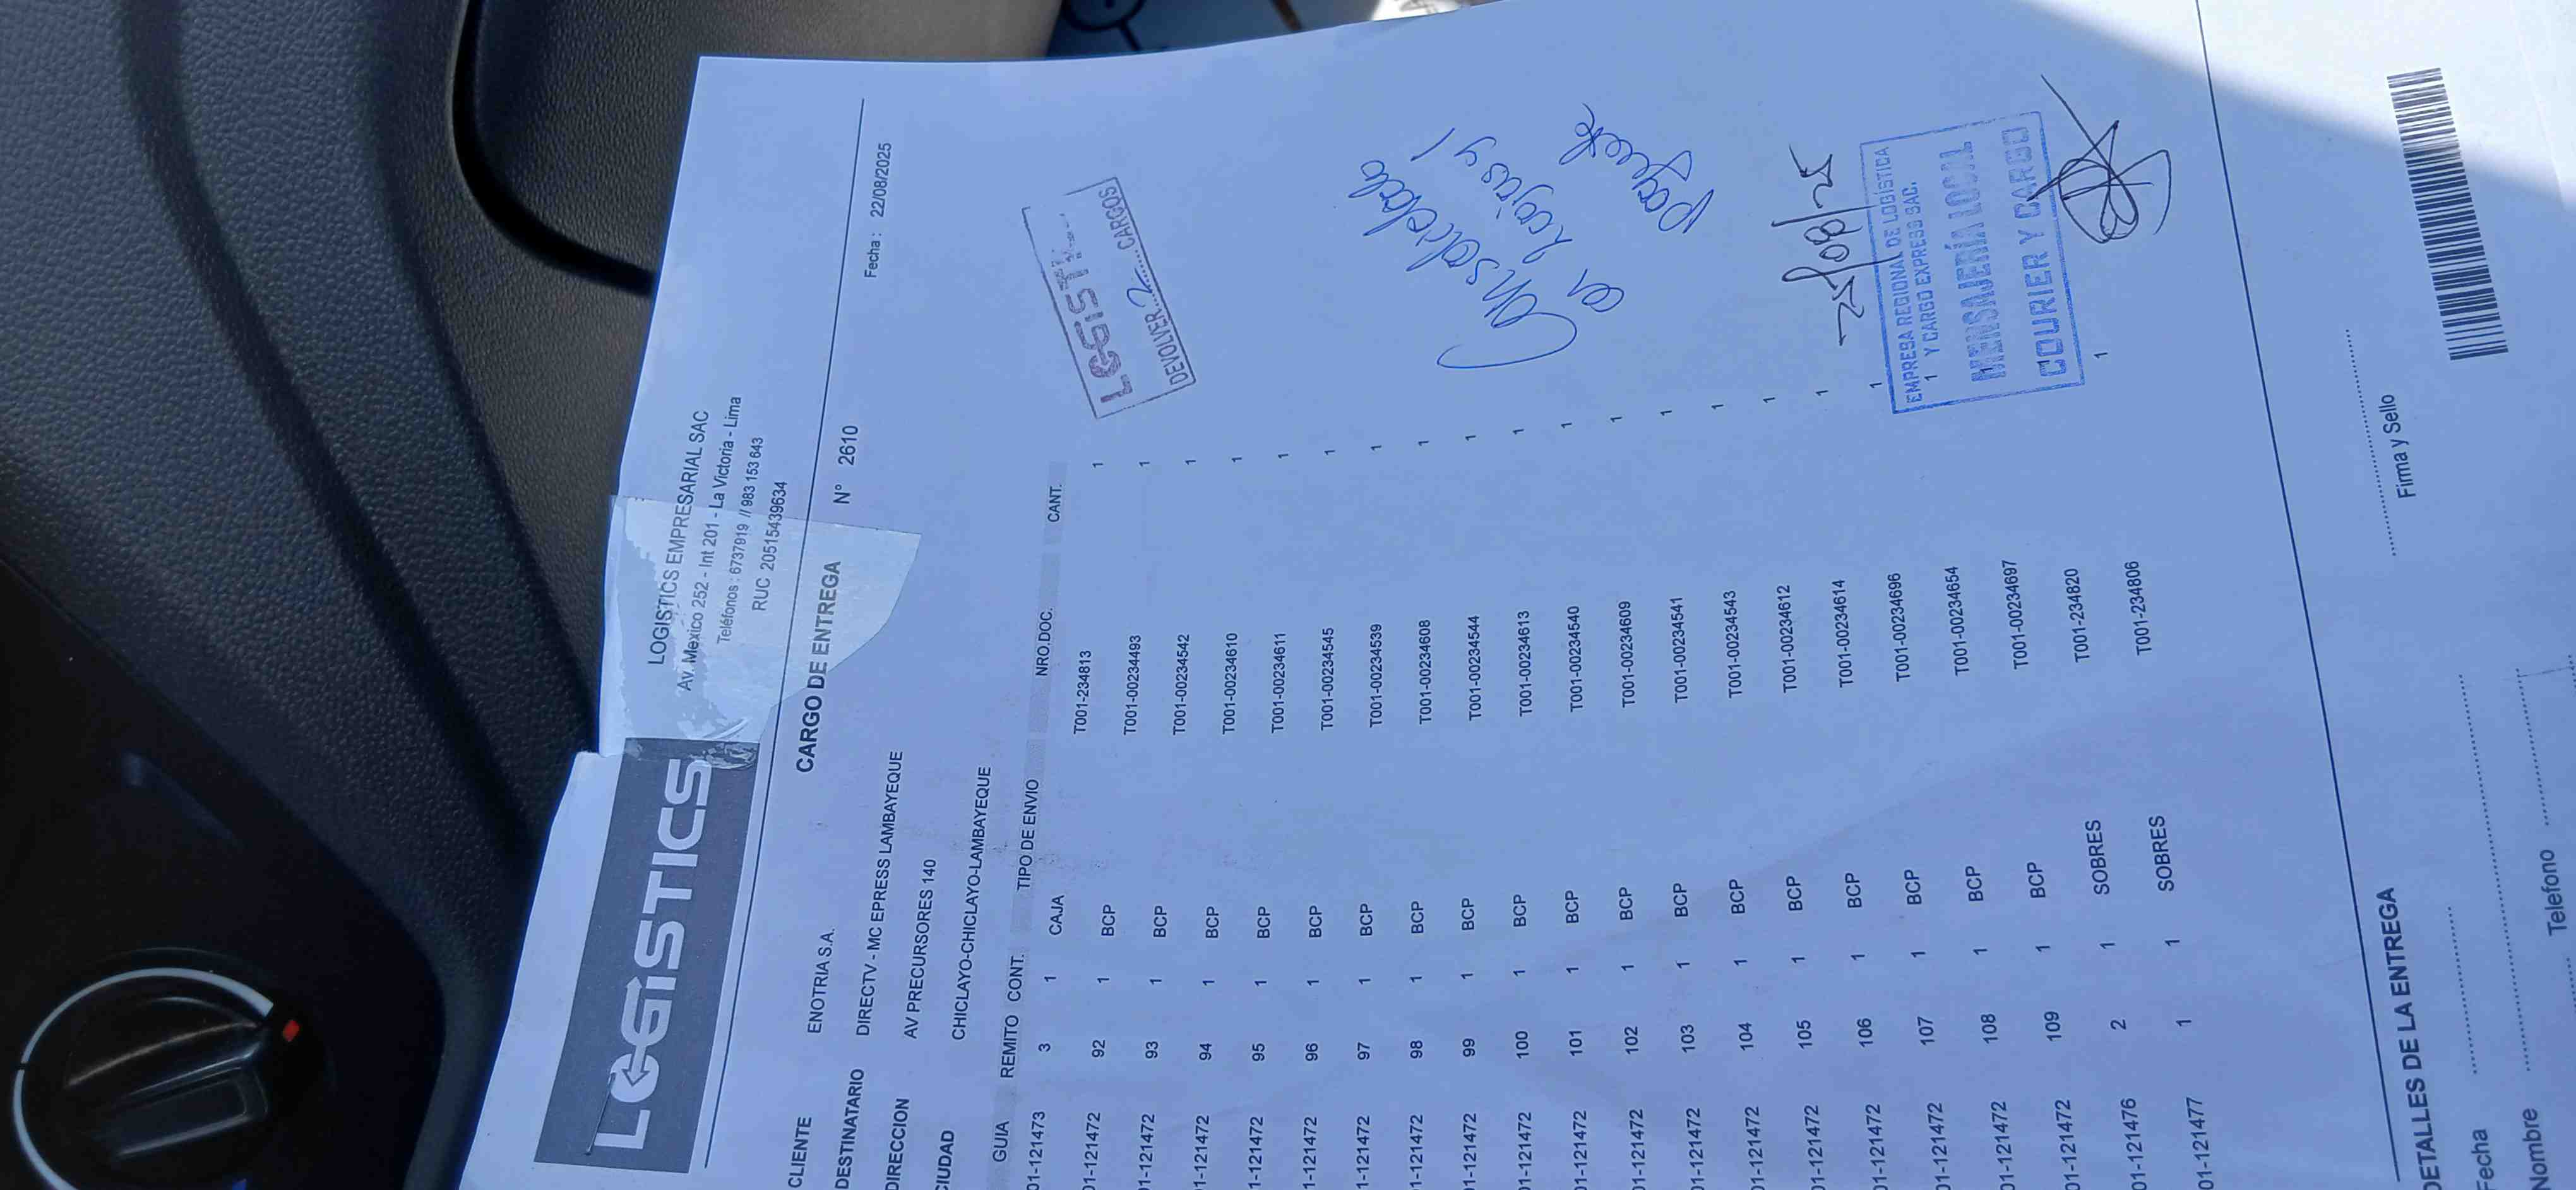 LOGISTICS
LOGISTICS EMPRESARIAL SAC
Av. Mexico 252 - Int 201 - La Victoria - Lima
Teléfonos : 6737919 // 983 153 643
RUC 20515439634
CARGO DE ENTREGA N° 2610
Fecha : 22/08/2025
CLIENTE ENOTRIA S.A.
DESTINATARIO DIRECTV - MC EPRESS LAMBAYEQUE
DIRECCION AV PRECURSORES 140
CIUDAD CHICLAYO-CHICLAYO-LAMBAYEQUE
GUIA REMITO CONT. TIPO DE ENVIO NRO.DOC. CANT.
01-121473 3 1 CAJA T001-234813 1
01-121472 92 1 BCP T001-00234493 1
01-121472 93 1 BCP T001-00234542 1
01-121472 94 1 BCP T001-00234610 1
01-121472 95 1 BCP T001-00234611 1
01-121472 96 1 BCP T001-00234545 1
01-121472 97 1 BCP T001-00234539 1
01-121472 98 1 BCP T001-00234608 1
01-121472 99 1 BCP T001-00234544 1
01-121472 100 1 BCP T001-00234613 1
01-121472 101 1 BCP T001-00234540 1
01-121472 102 1 BCP T001-00234609 1
01-121472 103 1 BCP T001-00234541 1
01-121472 104 1 BCP T001-00234543 1
01-121472 105 1 BCP T001-00234612 1
01-121472 106 1 BCP T001-00234614 1
01-121472 107 1 BCP T001-00234696 1
01-121472 108 1 BCP T001-00234654 1
01-121472 109 1 BCP T001-00234697 1
01-121476 2 1 SOBRES T001-234820
01-121477 1 1 SOBRES T001-234806 1
DEVOLVER 2 CARGOS
Consolidado
en 2 cajas y 1
paquete
25/08/25
EMPRESA REGIONAL DE LOGÍSTICA
Y CARGO EXPRESS SAC.
MENSAJERÍA LOCAL
COURIER Y CARGO
DETALLES DE LA ENTREGA
Fecha
Nombre
Telefono
Firma y Sello